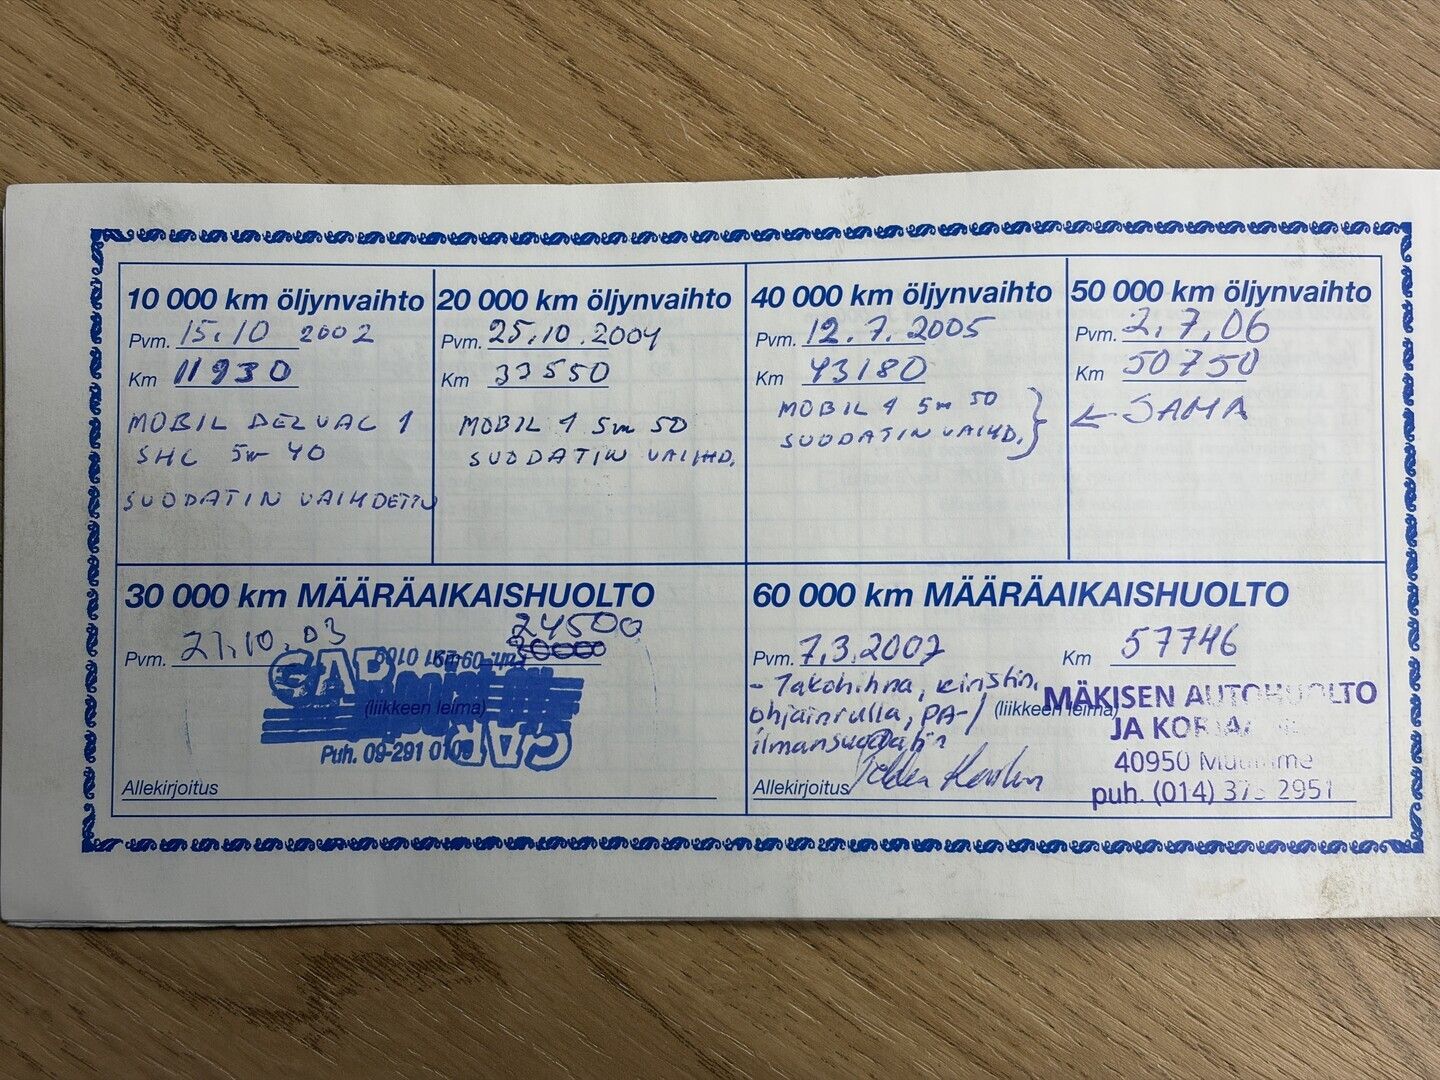 10 000 km öljynvaihto
Pvm. 15.10 2002
Km 11930
MOBIL DELVAC 1
SHC 5w 40
SUODATIN VAIHDETTU
20 000 km öljynvaihto
Pvm. 25.10.2004
Km 33550
MOBIL 1 5w 50
SUODATIN VAIHD.
40 000 km öljynvaihto
Pvm. 12.7.2005
Km 43180
MOBIL 1 5w 50
SUODATIN VAIHD.
50 000 km öljynvaihto
Pvm. 2.7.06
Km 50750
← SAMA
30 000 km MÄÄRÄAIKAISHUOLTO
Pvm. 27.10.03
24500
30000
CAR
Puh. 09-291 0100
(liikkeen leima)
CAR
Puh. 09-291 0100
Allekirjoitus
60 000 km MÄÄRÄAIKAISHUOLTO
Pvm. 7.3.2007 Km 57746
- Jakohihna,
ohjainrulla, PA-/
ilmansuodatin
(liikkeen leima)
MÄKISEN AUTOHUOLTO
JA
40950
puh. (014) 2951
Allekirjoitus